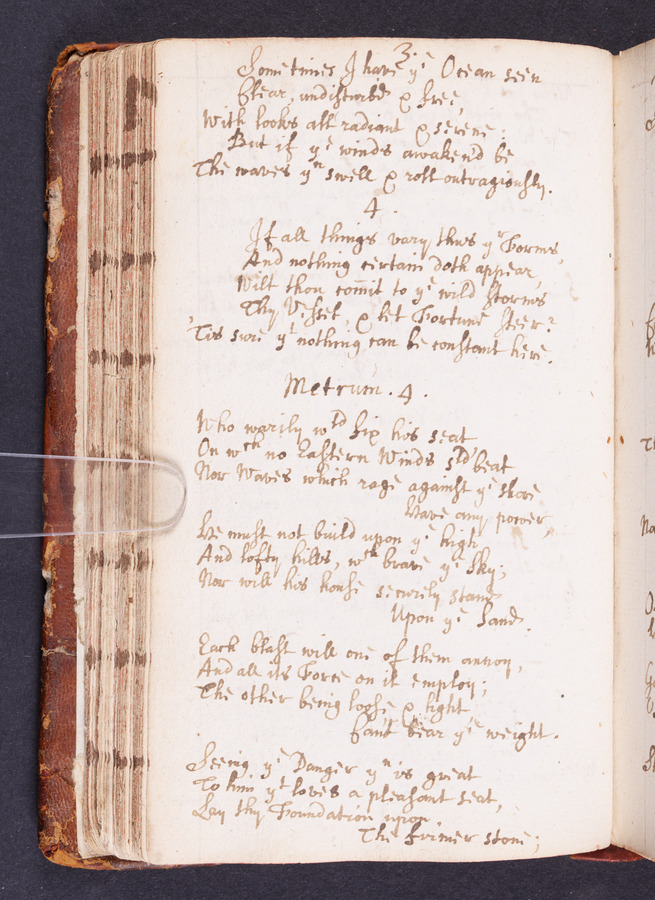 3.
Sometimes I have yᵉ Ocean seen
Clear, undisturb'd & free
With looks all radiant & serene:
But if yᵉ winds awaken'd be
The waves yⁿ swell & roll outragiously.
4.
If all things vary thus yʳ Forms,
And nothing certain doth appear,
Wilt thou comit to yᵉ wild storms
Thy Vessel, & let Fortune steer?
'Tis sure yᵗ nothing can be constant here.
Metrum. 4.
Who warily wˡᵈ fix his seat
On wᶜʰ no Eastern Winds sˡᵈ beat
Nor Waves which rage against yᵉ shore
Have any power,
He must not build upon yᵉ high
And lofty hills, wᶜʰ brave yᵉ sky;
Nor will his house securely stand
Upon yᵉ Sand.
Each blast will one of them annoy,
And all its Force on it employ;
The other being loose & light
Can't bear yᵉ weight.
Seeing yᵉ Danger yⁿ is great
To him yᵗ loves a pleasant seat,
Lay thy Foundation upon
The firmer stone;